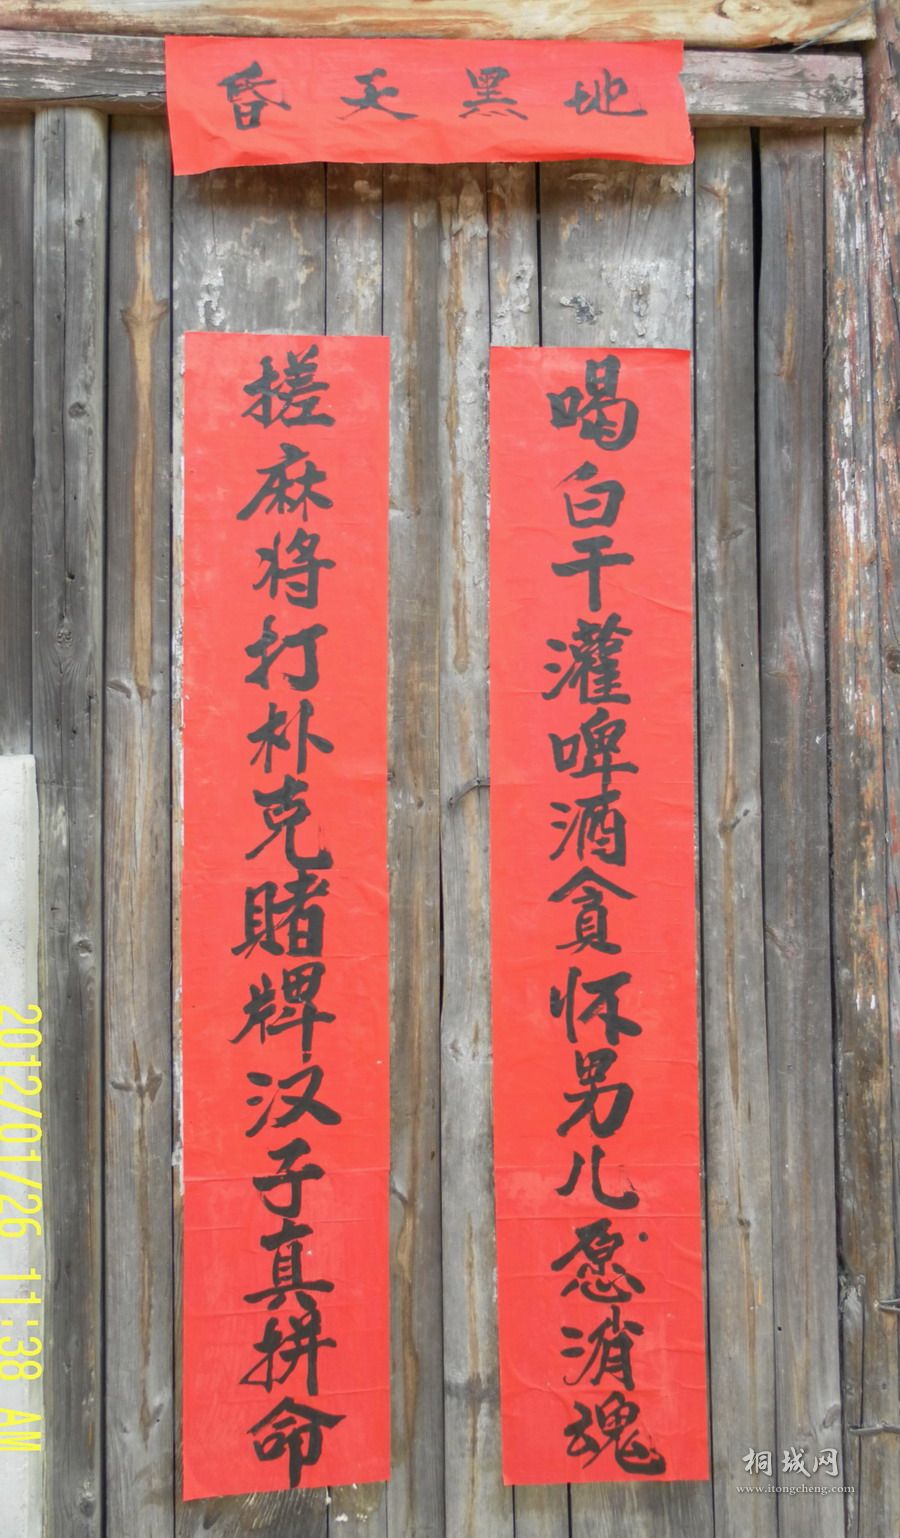 昏天黑地
喝白干灌啤酒贪怀男儿愿消魂
搓麻将打朴克赌牌汉子真拼命
2012/01/26 11:38 AM
桐城网
www.itongcheng.com